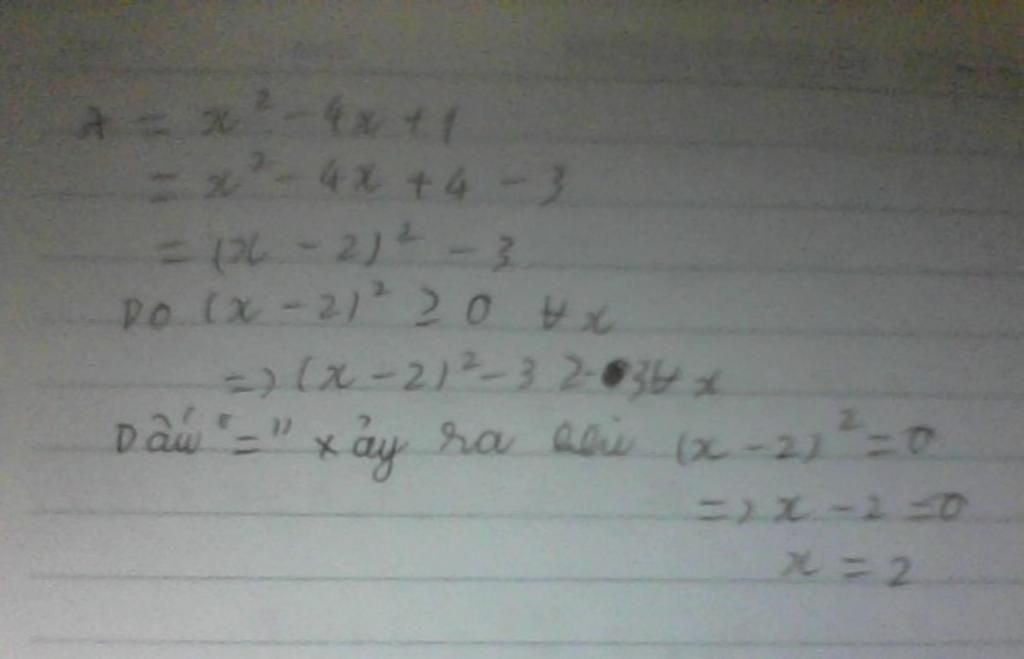 A = x² - 4x + 1
= x² - 4x + 4 - 3
= (x - 2)² - 3
Do (x - 2)² ≥ 0 ∀x
=> (x - 2)² - 3 ≥ -3 ∀x
Dấu "=" xảy ra khi (x - 2)² = 0
=> x - 2 = 0
x = 2